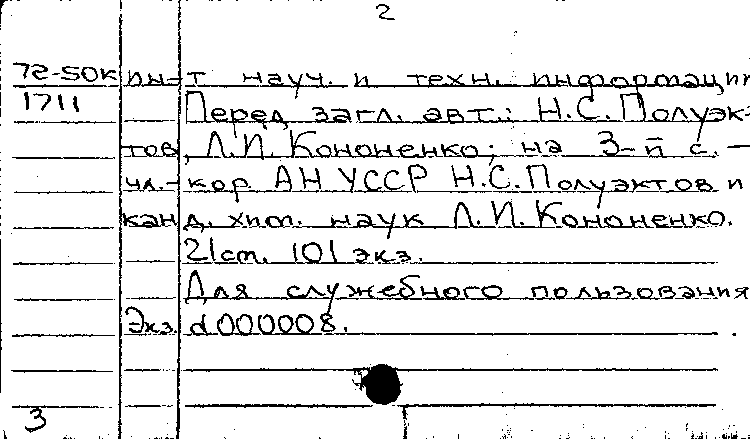 2
72-50к ин-т науч. и техн. информации
1711 Перед загл. авт.: Н.С. Полуэк-
тов, Л.И. Кононенко; на 3-й с. -
чл.-кор АН УССР Н.С. Полуэктов и
канд. хим. наук Л.И. Кононенко.
21cm. 101 экз.
Для служебного пользования
Экз. d000008.
3